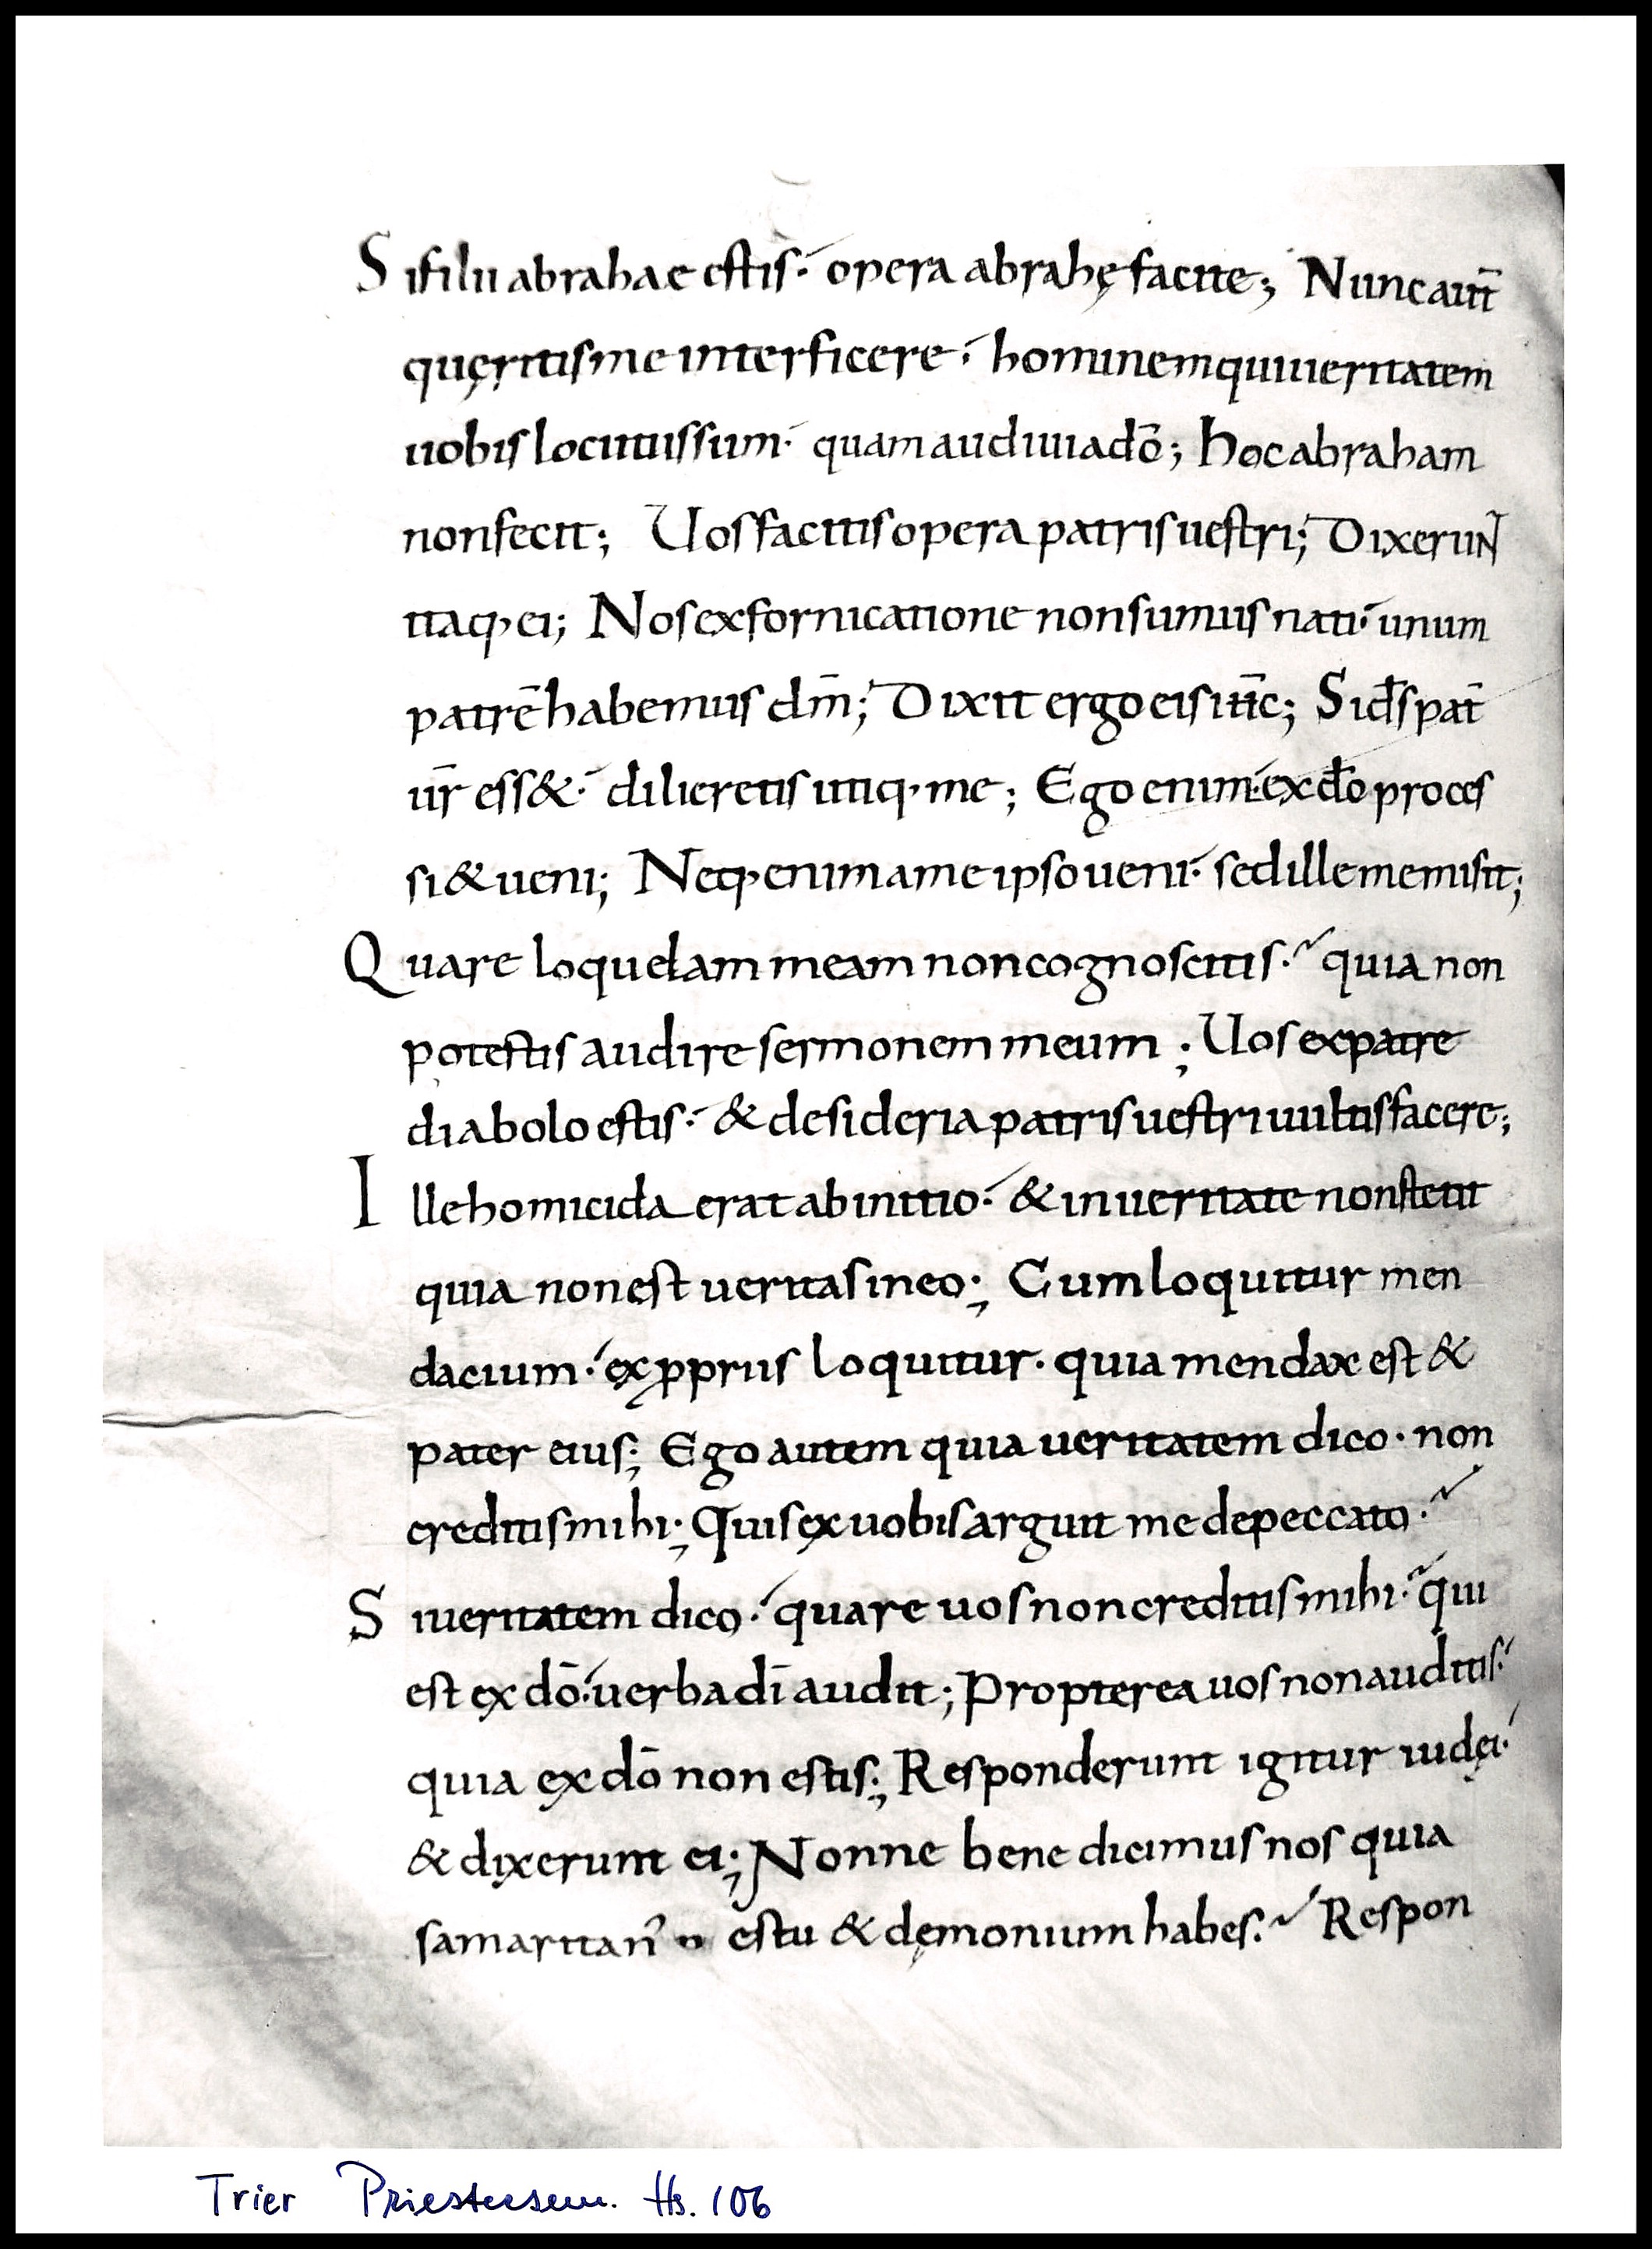 Si filii abrahae estis· opera abrahę facite; Nunc aut̄
quęritis me interficere· hominem qui ueritatem
uobis locutus sum· quam audiui a dō; hoc abraham
non fecit; Uos facitis opera patris uestri; DixeruNT
itaq· ei; Nos ex fornicatione non sumus nati· unum
patrē habemus dm̄; Dixit ergo eis ih̄c; Si d̄s pat̄
ur̄ ess&· diligeretis utiq· me; Ego enim· ex d̄o proces
si & ueni; Neq· enim a me ipso ueni· sed ille me misit;
Quare loquelam meam non cognoscitis· quia non
potestis audire sermonem meum; Uos ex patre
diabolo estis· & desideria patris uestri uultis facere;
Ille homicida erat ab initio· & in ueritate non stetit
quia non est ueritas in eo; Cum loquitur men
dacium· ex ꝓpriis loquitur· quia mendax est &
pater eius; Ego autem quia ueritatem dico· non
creditis mihi; Quis ex uobis arguit me de peccato·
Si ueritatem dico· quare uos non creditis mihi· qui
est ex dō· uerba dī audit; Propterea uos non auditis·
quia ex dō non estis; Responderunt igitur iudęi·
& dixerunt ei; Nonne bene dicimus nos quia
samaritan᾽ es tu & dęmonium habes· Respon
Trier Priestersem. Hs. 106